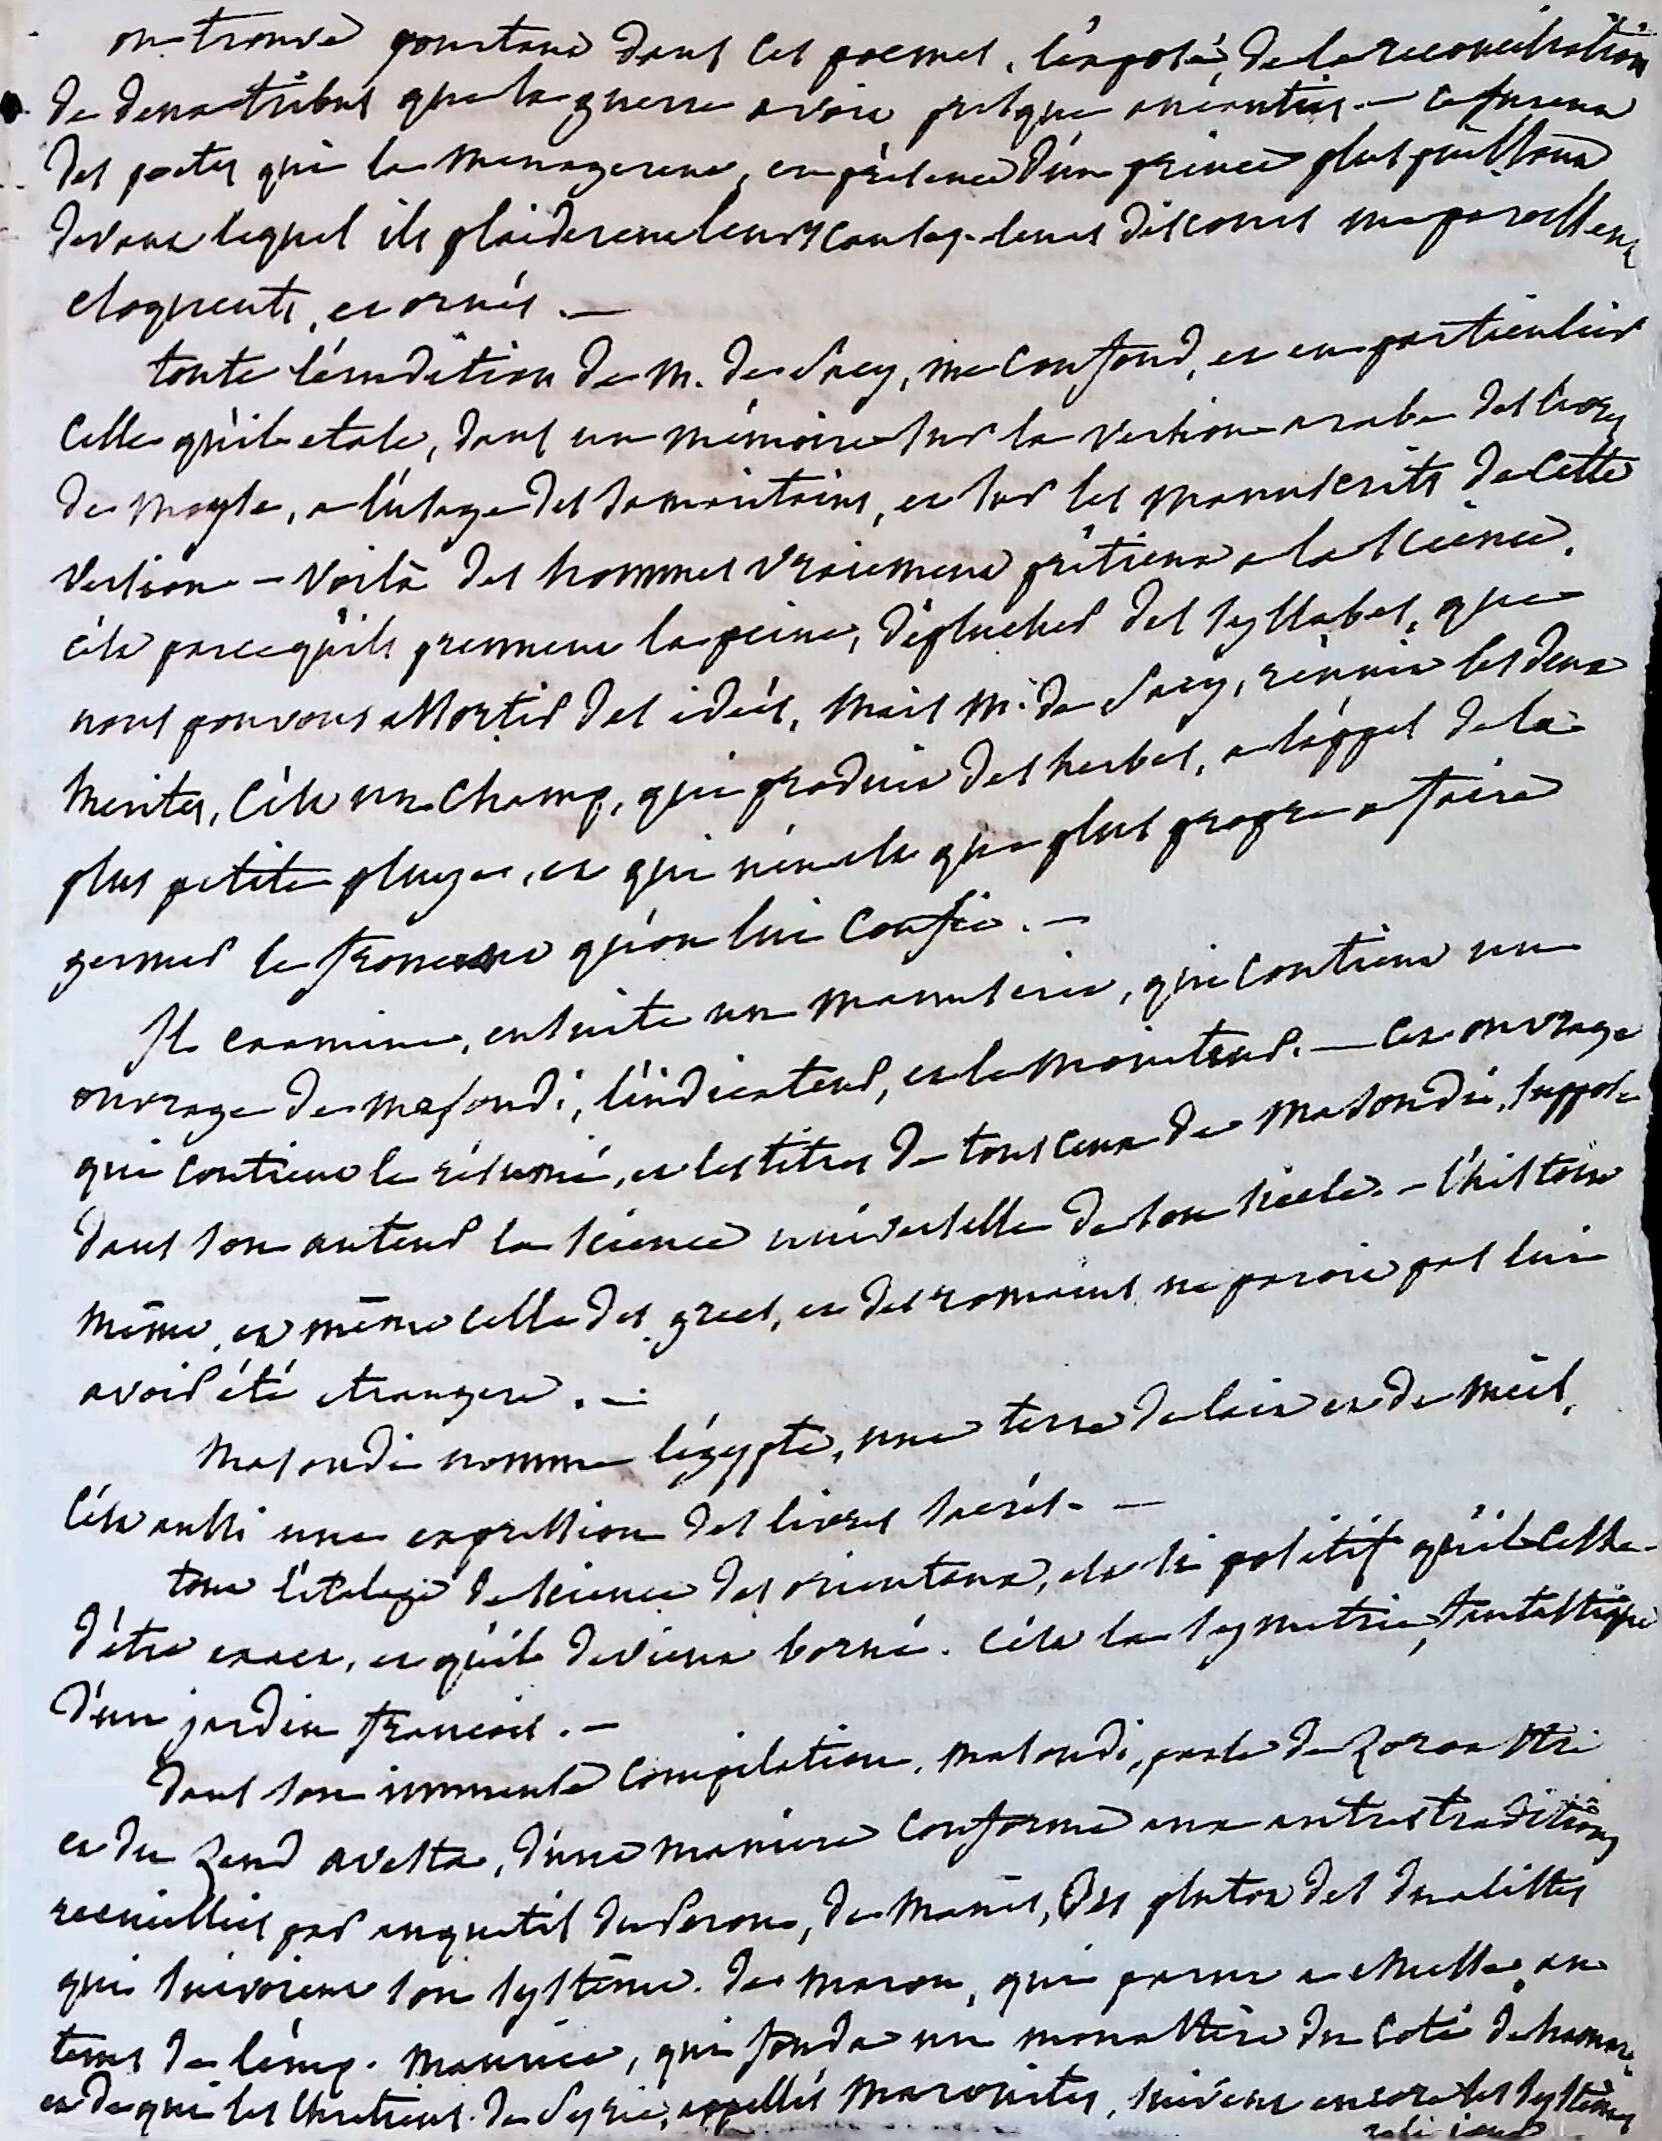 on trouve pourtant dans ces poemes, l'exposé, de la reconciliation
de deux tribus que la guerre avoit presque anéanties. — ce furent
des poetes qui la menagerent, en présence d'un prince plus puissant
devant lequel ils plaiderent leurs causes. leurs discours me paroissent
eloquents, et ornés. —
toute l'érudition de M. de Sacy, me confond, et en particulier
celle qu'il etale, dans un mémoire sur la version arabe des livres
de Moyse, a l'usage des samaritains, et sur les manuscrits de cette
version — voilà des hommes vraiement
a la science.
c'est parce qu'ils prennent la peine, d'eplucher des syllabes, que
nous pouvons assortir des idées, mais M. de Sacy, réunit les deux
merites, c'est un champ, qui produit des herbes, a l'appel de la
plus petite pluye, et qui n'en est que plus propre a faire
germer le froment qu'on lui confie. —
Il examine, ensuite un manuscrit, qui contient un
ouvrage de Masoudi, l'indicateur, et le moniteur. — cet ouvrage
qui contient le résumé, et les titres de tous ceux de Masoudi, suppose
dans son auteur la science universelle de son siecle. — l'histoire
même, et même celle des grecs, et des romains ne paroit pas lui
avoir été etrangere. —
Masoudi nomme l'égypte, une terre de lait et de miel,
c'est aussi une expression des livres sacrés. —
tout l'etalage de science des orientaux, est si positif qu'il cesse
d'être exact, et qu'il devient borné. c'est la symetrie, fantastique
d'un jardin françois. —
dans son immense compilation, Masoudi, parle de Zoroastre
et du Zend avesta, d'une maniere conforme aux autres traditions
recueillies par anquetil duperron, de Manès, des
des dualistes
qui suivoient son systême. de Maron, qui parut a
au
tems de l'emp. Maurice, qui fonda un monastère du coté de hamat,
et de qui les chretiens de Syrie, appellés Maronites, suivent encore les systêmes